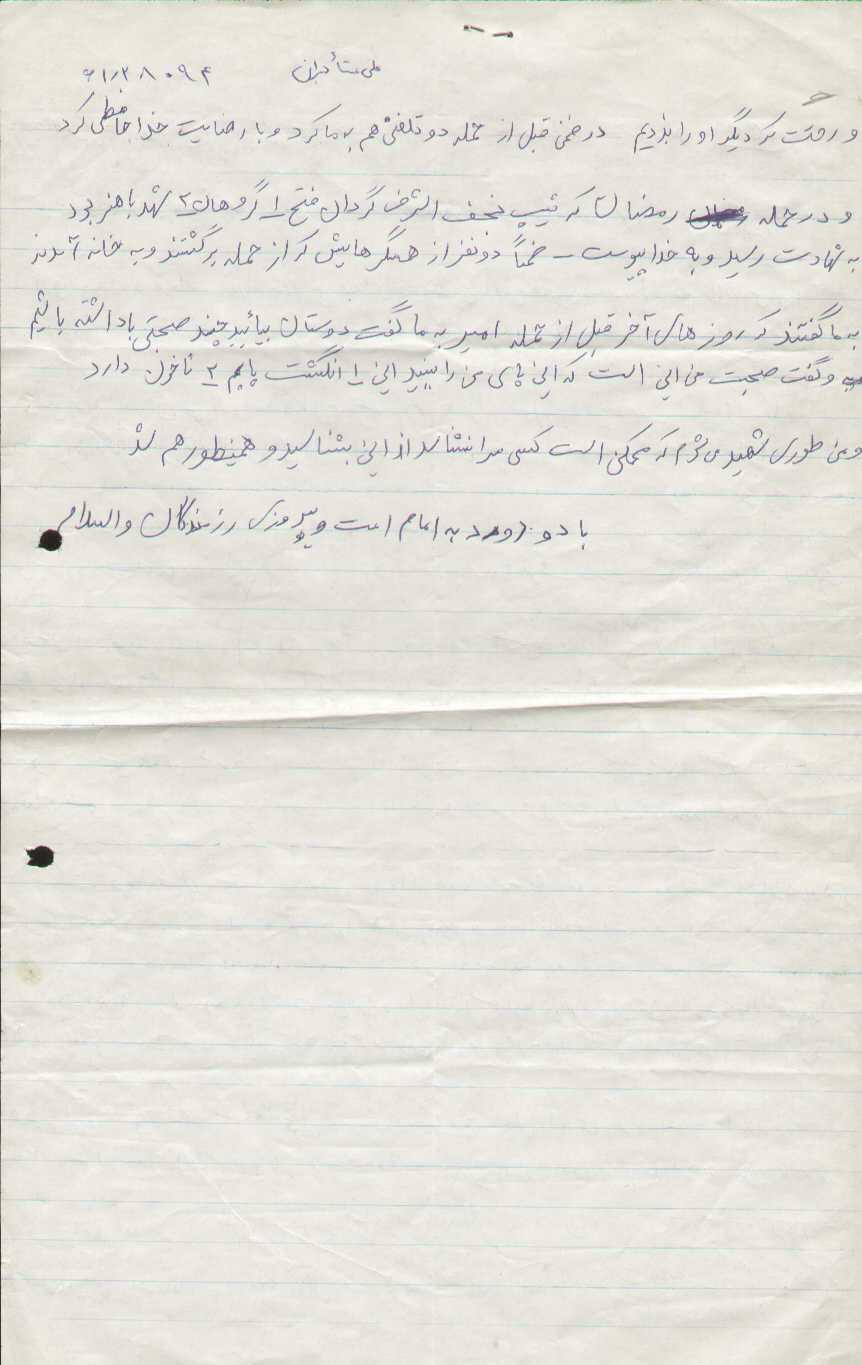 ۶۱۲۳۸۰۹۴
و رفت که دیگر او را ندیدیم در ضمن قبل از حمله دو تلفنی هم به ما کرد و با رضایت خداحافظی کرد
و در حمله رمضان که تیپ نجف اشرف گردان فتح ۱ گروهان ۲ شهید باهنر بود
به شهادت رسید و به خدا پیوست - ضمناً دو نفر از همسنگرهایش که از حمله برگشتند و به خانه آمدند
به ما گفتند که روزهای آخر قبل از حمله امیر به ما گفت دوستان بیائید چند صحبتی با داشته باشیم
و گفت صحبت من این است که این پای من را ببینید این ۱ انگشت پایم ۲ ناخن دارد
و من طوری شهید می‌شوم که ممکن است کسی مرا نشناسد از این بشناسید و همینطور هم شد
با درود به امام امت و پیروزی رزمندگان والسلام